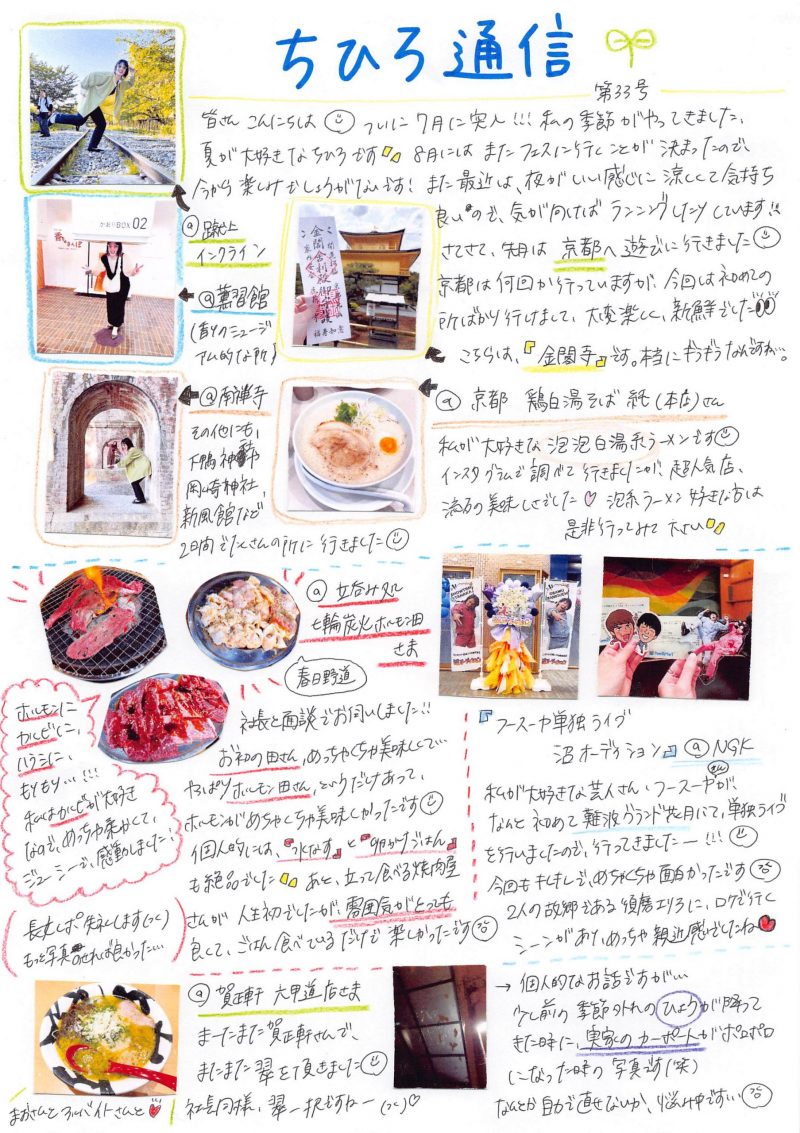 ちひろ通信
第33号
皆さん こんにちは ついに 7月に突入!!! 私の季節がやってきました、
夏が大好きなちひろです 8月には またフェスに行くことが 決まったので、
今から楽しみでしょうがないです! また最近は、夜がいい感じに涼しくて気持ち
良いので、気が向けば ランニングしたりしています!!
さてさて、先月は 京都へ遊びに行きました
京都は何回か行っていますが、今回は初めての
所ばかり行けまして、大変楽しく、新鮮でした
こちらは、『金閣寺』です。本当にギラギラなんですね…。
@蹴上
インクライン
かおりBOX 02
@薫習館
(香りのミュージ
アム的な所)
@南禅寺
その他にも、
下鴨神社
岡崎神社、
新風館など
2日間でたくさんの所に行きました
@ 京都 鶏白湯そば 純(本店)さん
私が大好きな 泡泡白湯系ラーメンです
インスタグラムで調べて行きましたが、超人気店、
流石の美味しさでした♡ 泡系ラーメン好きな方は
是非行ってみて 下さい
@ 立呑み処
七輪炭火ホルモン田
さま
春日野道
ホルモンに
カルビに、
ハラミに、
もりもり…!!!
私はカルビが大好き
なので、めっちゃ柔かくて、
ジューシーで、感動しました!
社長と面談でお伺いしました!!
お初の田さん、めっちゃくちゃ美味しくて…
やっぱり ホルモン田さん、というだけあって、
ホルモンがめちゃくちゃ美味しかったです
個人的には、『水なす』と『卵かけごはん』
も絶品でした あと、立って食べる焼肉屋
さんが 人生初でしたが、雰囲気がとっても
良くて、ごはん食べているだけで 楽しかったです
もっと写真 せれば良かった…
『フースーヤ単独ライブ
沼オーディション』@NGK
私が大好きな芸人さん、フースーヤさんが、
なんと 初めて 難波グランド花月にて、単独ライブ
を行いましたので、行ってきましたー!!!
今回もキレキレで、めちゃくちゃ面白かったです
2人の故郷である 須磨エリアに、ロケで行く
シーンがあり、めっちゃ 親近感でしたね
@ 賀正軒 六甲道店さま
まーたまた 賀正軒さんで、
またまた 翠を頂きました
社長同様、翠一択ですねー
まおさんとアルバイトさんと
→ 個人的なお話ですが…
少し前の 季節外れの ひょうが降って
きた時に、実家のカーポートがボロボロ
になった時の 写真です(笑)
なんとか自力で直せないか、悩み中です…